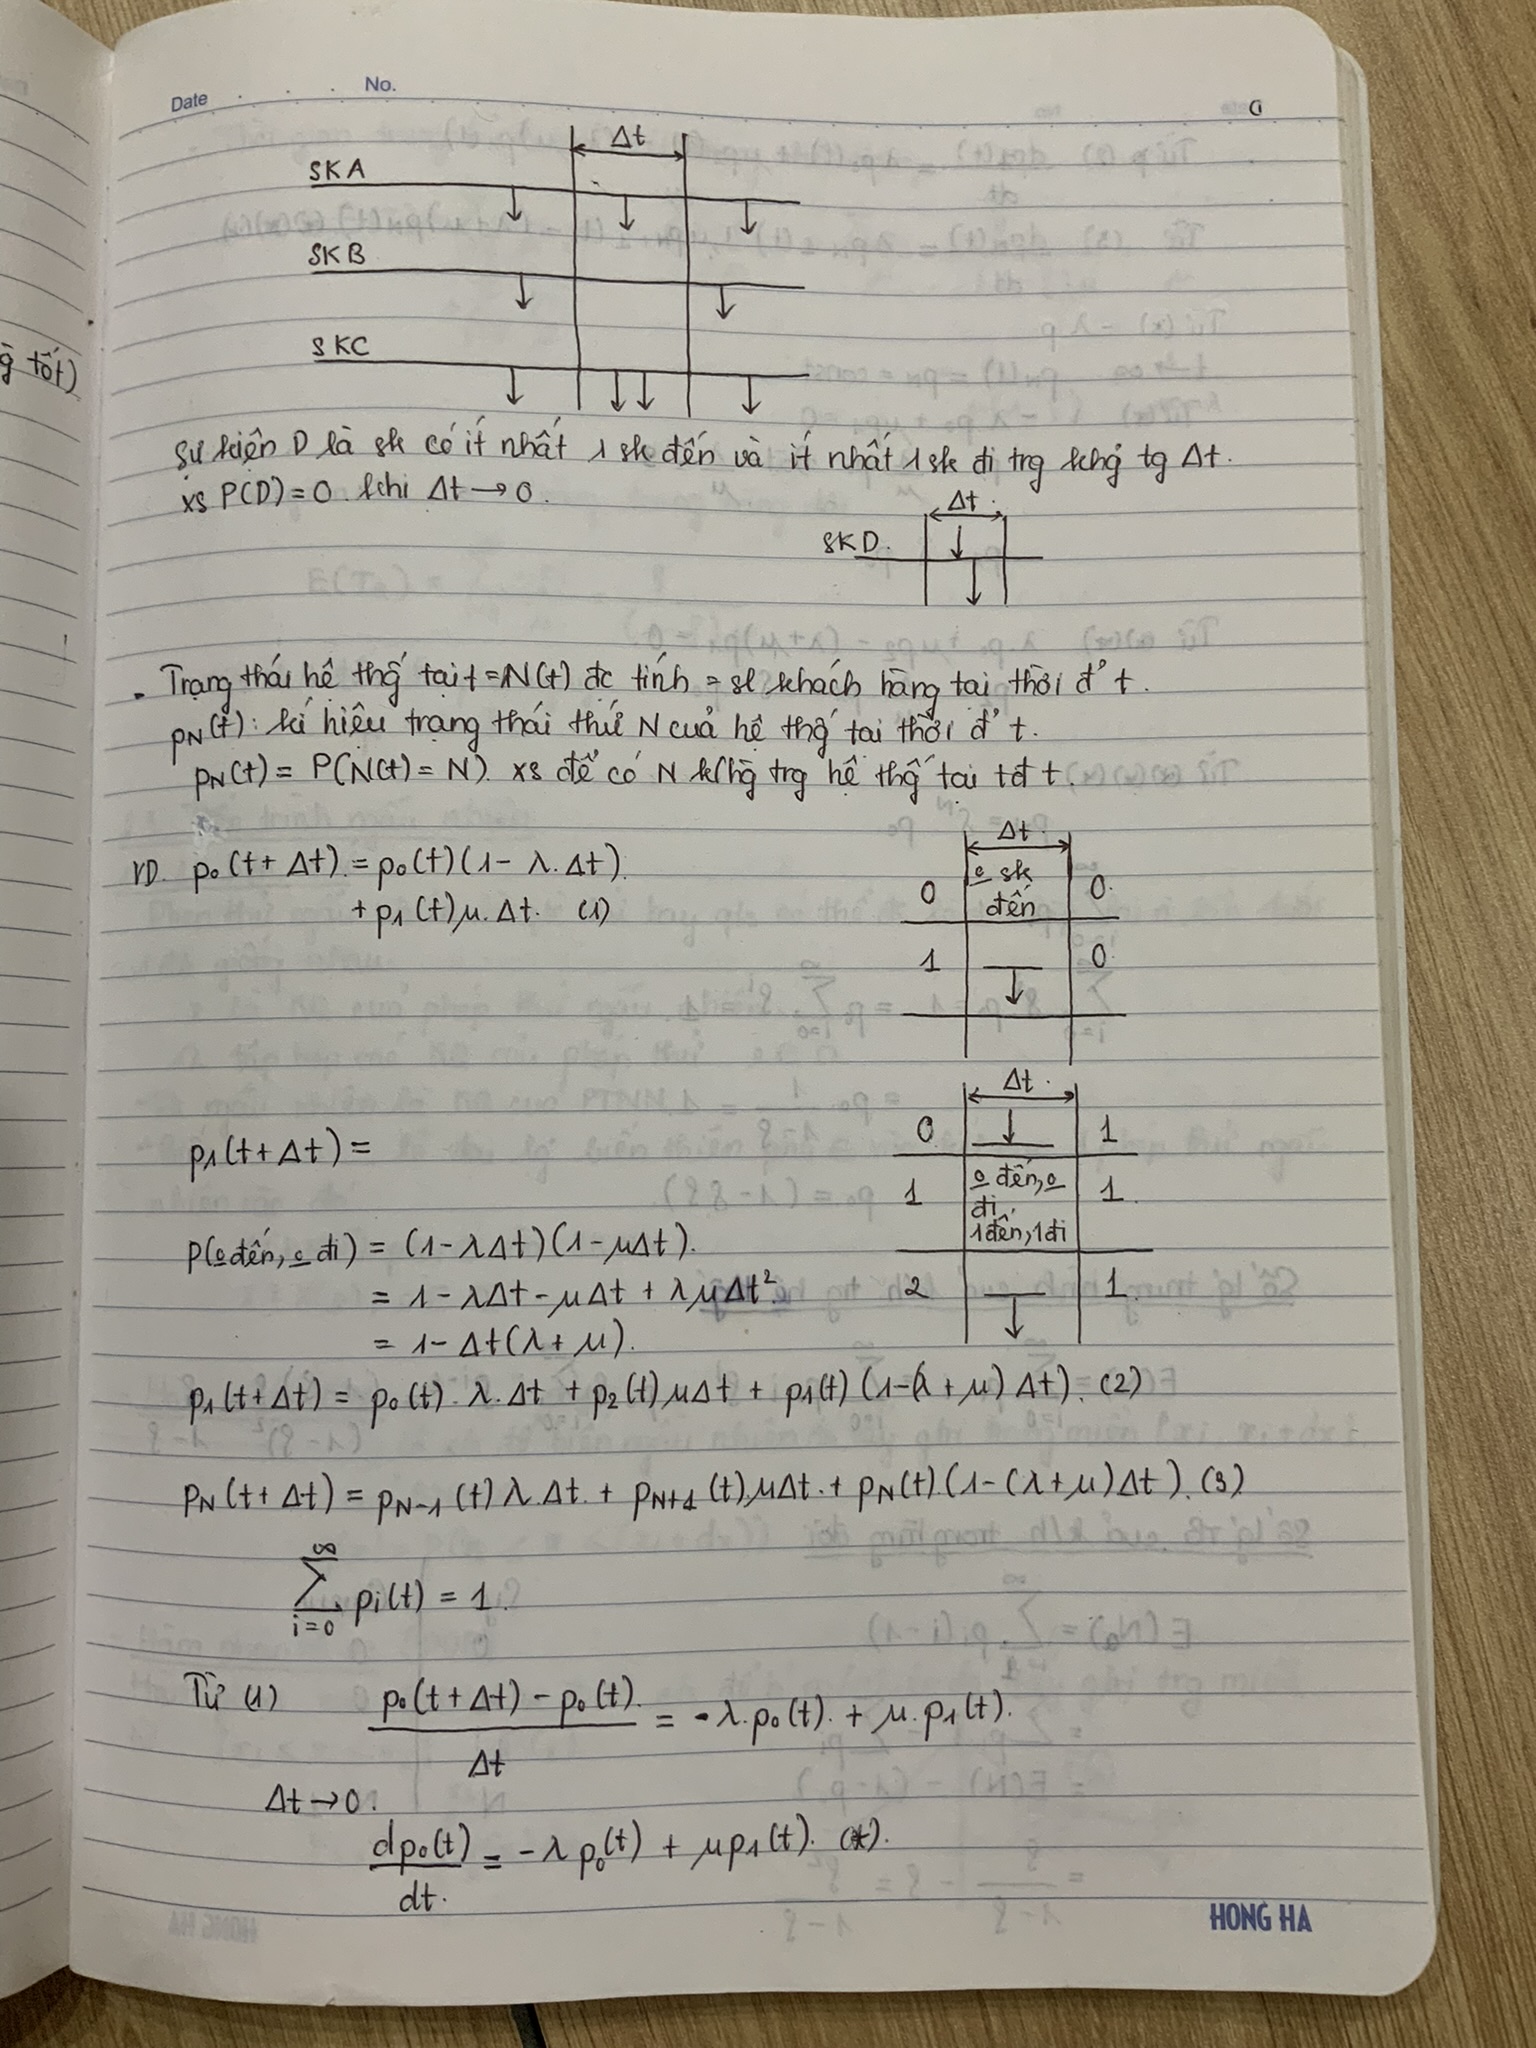 Date No.
Δt
SKA
SKB
SKC
Sự kiện D là sk có ít nhất 1 sk đến và ít nhất 1 sk đi trg khg tg Δt.
xs P(D) = 0 khi Δt → 0.
Δt
SKD.
- Trạng thái hệ thg tại t = N(t) đc tính = sl khách hàng tại thời đ' t.
pN(t): kí hiệu trạng thái thứ N của hệ thg tại thời đ' t.
pN(t) = P(N(t) = N). xs để có N k/hg trg hệ thg tại tđ t.
VD. p₀(t + Δt) = p₀(t)(1 - λ.Δt)
+ p₁(t)μ.Δt. (1)
Δt
0 o sk đến 0
1 0
p₁(t + Δt) =
Δt
0 1
1 o đến, o đi 1
1 đến, 1 đi
2 1
P(o đến, o đi) = (1 - λΔt)(1 - μΔt).
= 1 - λΔt - μΔt + λμΔt²
= 1 - Δt(λ + μ).
p₁(t + Δt) = p₀(t).λ.Δt + p₂(t)μΔt + p₁(t)(1 - (λ + μ)Δt). (2)
pN(t + Δt) = pN-1(t)λ.Δt + pN+1(t).μΔt + pN(t).(1 - (λ + μ)Δt). (3)
∞
∑ pi(t) = 1.
i=0
Từ (1) p₀(t + Δt) - p₀(t) = -λ.p₀(t) + μ.p₁(t).
Δt
Δt → 0.
dp₀(t) = -λp₀(t) + μp₁(t). (*).
dt.
HONG HA